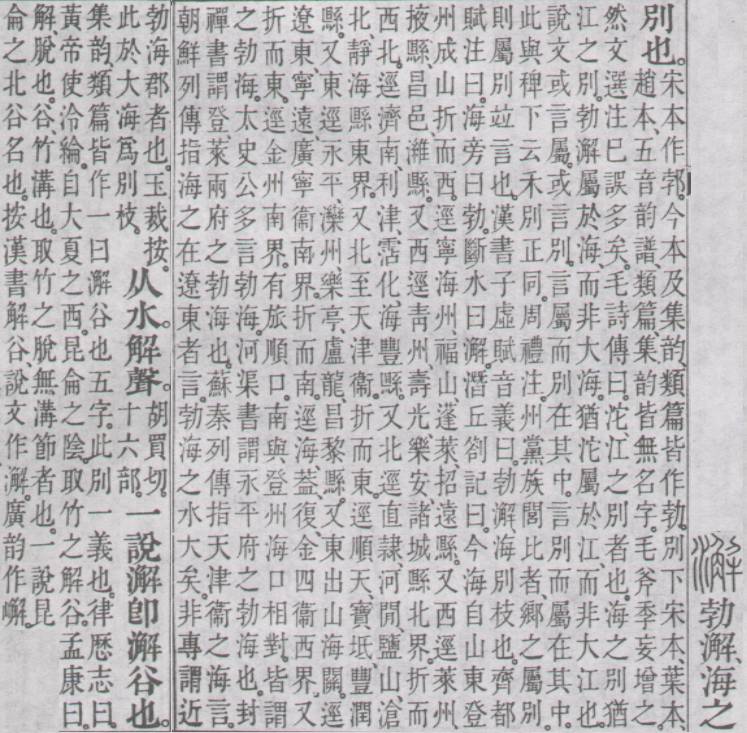 勃澥、海之
別也。宋本作郣。今本及集韵、類篇皆作勃。別下宋本、葉本、
趙本、五音韵譜、類篇、集韵皆無名字。毛斧季妄增之。
然文選注巳誤多矣。毛詩傳曰。沱、江之別者也。海之別猶
江之別。勃澥屬於海、而非大海。猶沱屬於江、而非大江也。
說文或言屬。或言別。言屬而別在其中。言別而屬在其中。
此與稗下云禾別正同。周禮注。州黨族閭比者、鄉之屬別。
則屬別竝言也。漢書子虛賦音義曰。勃澥、海別枝也。齊都
賦注曰。海旁曰勃。斷水曰澥。潛丘劄記曰。今海自山東登
州成山折而西。逕寧海州、福山、蓬萊、招遠縣。又西逕萊州、
掖縣、昌邑、濰縣。又西逕青州、壽光樂安、諸城縣北界。折而
西北。逕濟南、利津、霑化、海豐縣。又北逕直隸、河閒、鹽山、滄
北、靜海縣東界。又北至天津衞。折而東。逕順天、寶坻、豐潤
縣。又東逕永平、灤州、樂亭、盧龍、昌黎縣。又東出山海關。逕
遼東、寧遠、廣寧衞南界。折而南。逕海、蓋、復、金四衞西界。又
折而東。逕金州南界。有旅順口。南與登州海口相對。皆謂
之勃海。太史公多言勃海。河渠書謂永平府之勃海也。封
禪書謂登、萊兩府之勃海也。蘇秦列傳指天津衞之海言。
朝鮮列傳指海之在遼東者言。勃海之水大矣。非專謂近
勃海郡者也。玉裁按。
此於大海爲別枝。从水解聲。胡買切。十六部。一說澥卽澥谷也。
集韵、類篇皆作一曰澥谷也五字。此別一義也。律歷志曰。
黃帝使泠綸。自大夏之西。昆侖之陰。取竹之解谷。孟康曰。
解、脫也。谷、竹溝也。取竹之脫無溝節者也。一說昆
侖之北谷名也。按漢書解谷、說文作澥。廣韵作嶰。